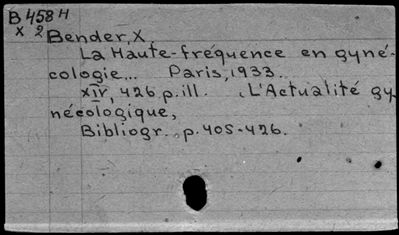 B 458 H
x 2 Bender, X.
La Haute-fréquence en gyné-
cologie... Paris, 1933.
XIV, 426 p. ill. (L'Actualité gy
nécologique,
Bibliogr. p. 405-426.